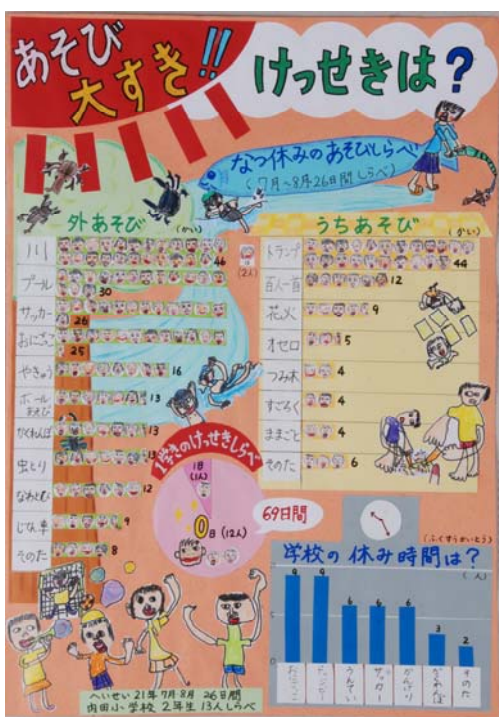 あそび
大すき!!
けっせきは?
なつ休みのあそびしらべ
(7月~8月26日間しらべ)
外あそび
(かい)
川 46
プール 30
サッカー 26
おにごっこ 25
やきゅう 16
ボールあそび 13
かくれんぼ 13
虫とり 13
なわとび 12
じてん車 9
そのた 8
(2人)
うちあそび
(かい)
トランプ 44
百人一首 12
花火 9
オセロ 5
つみ木 4
すごろく 4
ままごと 4
そのた 6
1学きのけっせきしらべ
1日
(1人)
0日(12人)
69日間
学校の休み時間は?
(ふくすうかいとう)
(人)
5
0
9
9
6
6
6
3
2
おにごっこ
ドッジボール
うんてい
サッカー
かんけり
かくれんぼ
そのた
へいせい21年7月8月 26日間
内田小学校 2年生 13人しらべ